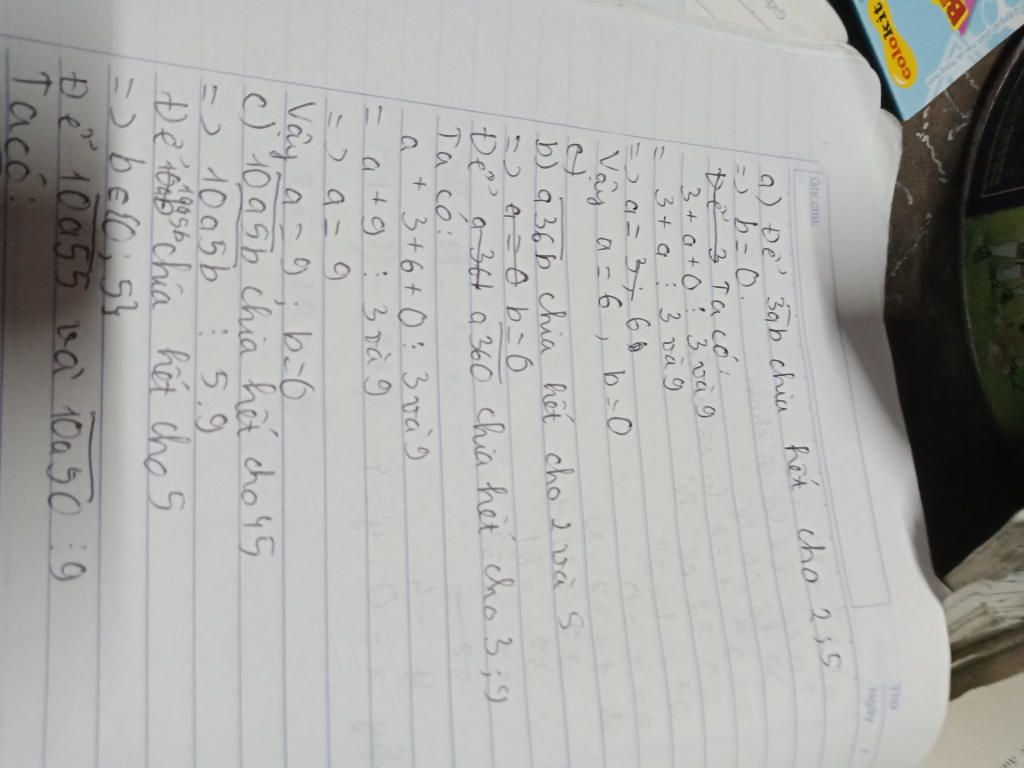 Ghi chú
Thứ
Ngày
a) Để 3ab chia hết cho 2; 5
=> b = 0.
Để 3 Ta có:
3 + a + 0 ⋮ 3 và 9
= 3 + a ⋮ 3 và 9
=> a = 3; 6
Vậy a = 6, b = 0
c)
b) a36b chia hết cho 2 và 5
=> a = 0 b = 0
Để a36 a360 chia hết cho 3; 9
Ta có:
a + 3 + 6 + 0 ⋮ 3 và 9
= a + 9 ⋮ 3 và 9
=> a = 9
Vậy a = 9; b = 0
c) 10a5b chia hết cho 45
=> 10a5b ⋮ 5; 9
Để 10a5b chia hết cho 5
=> b ∈ {0; 5}
Để 10a55 và 10a50 ⋮ 9
Ta có:
colokit